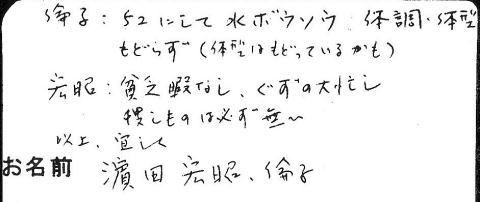 倫子：52にして水ボウソウ 体調・体型
もどらず（体型はもどっているかも）
宏昭：貧乏暇なし、ぐずの大忙し
ものは必ず無〜
以上、宜しく
お名前 濵田 宏昭、倫子